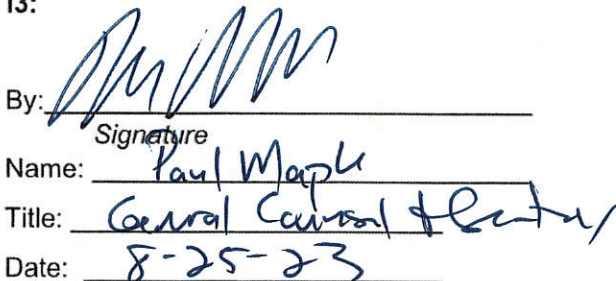 I3:
By:
Signature
Name: Paul Maple
Title: General Counsel & Secretary
Date: 8-25-23